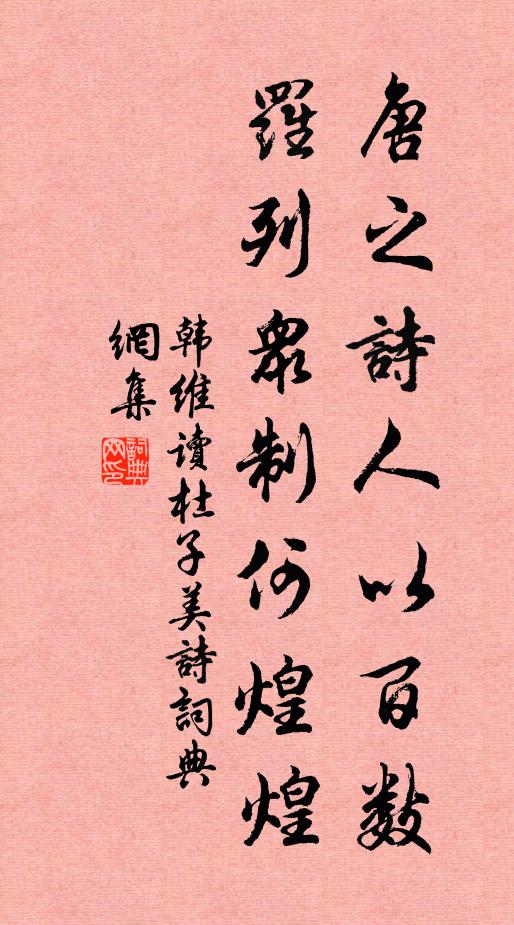 唐之詩人以百数
羅列眾制何煌煌
韩维讀杜子美詩詞典
網集
詞典
网印